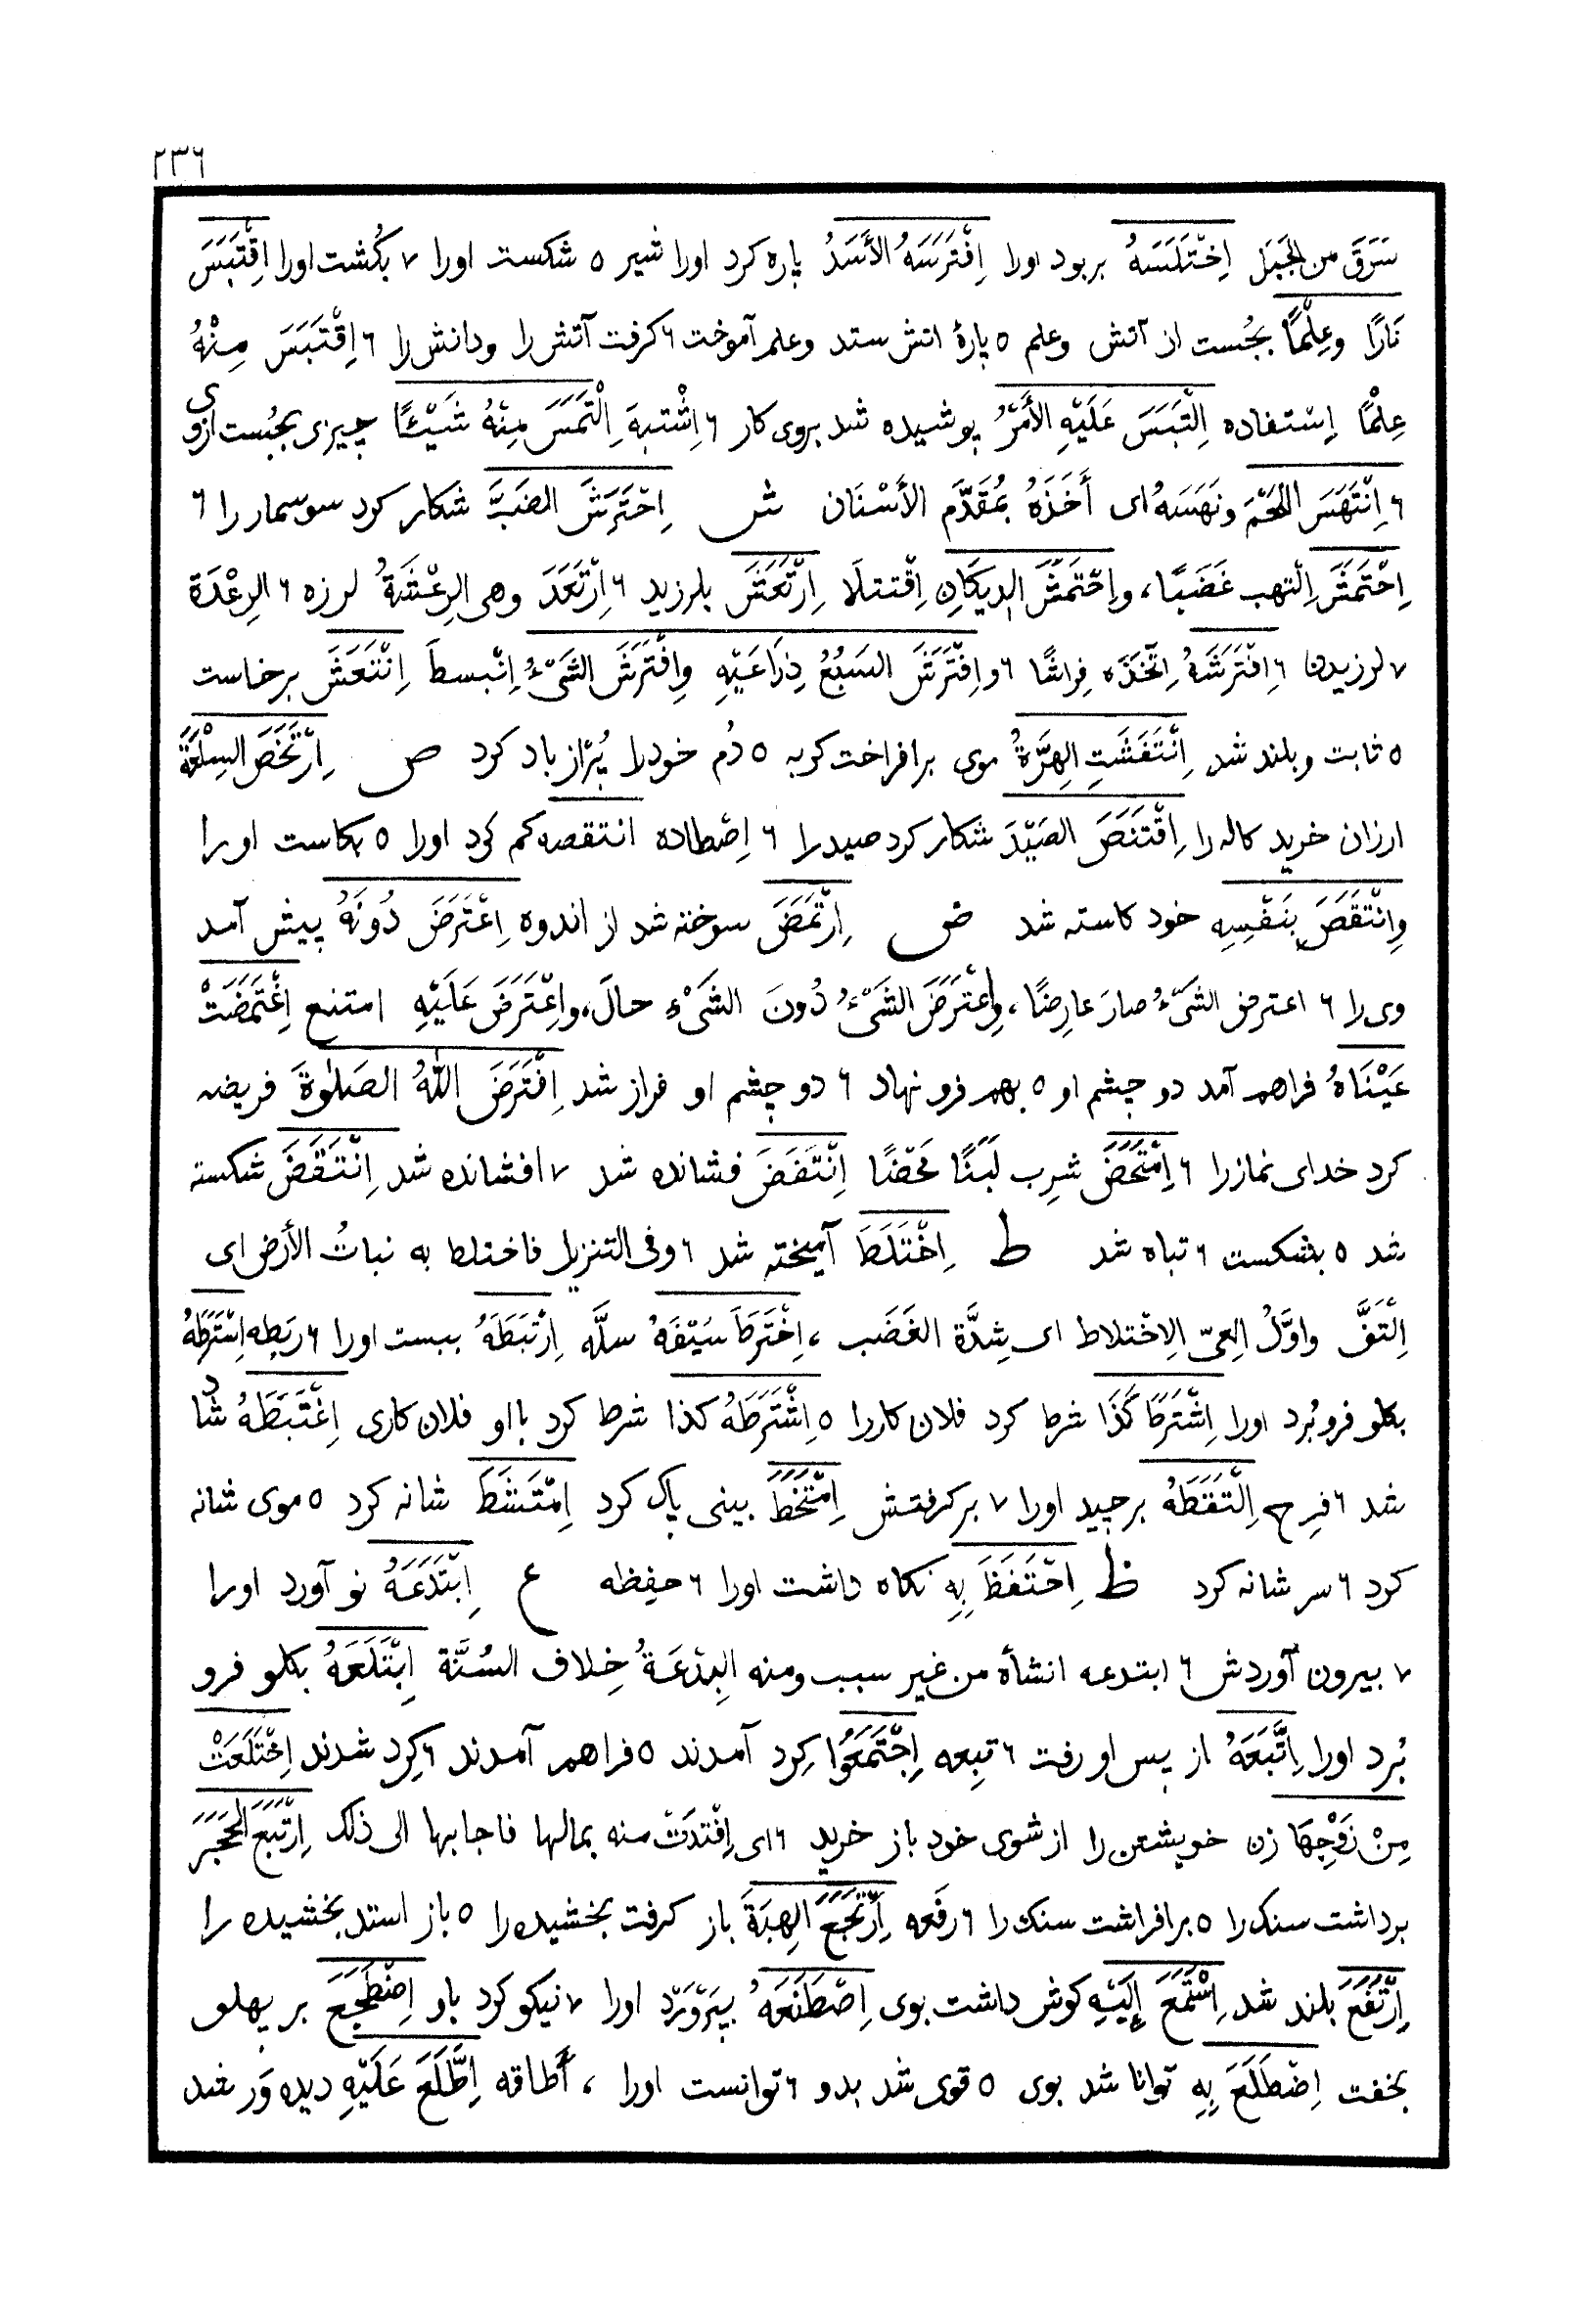 ۲۳۶
سَرَقَ من الجَبَل اِخْتَلَسَهُ بربود اورا اِفْتَرَسَهُ الأَسَدُ پاره کرد اورا شیر ۵ شکست اورا ۷ بکُشت اورا اِقْتَبَسَ
نَارًا وعِلْمًا بجُست از آتش وعلم ۵ پارۀ اتش ستد وعلم آموخت ۶ کرفت آتش را ودانش را ۶ اِقْتَبَسَ مِنْهُ
عِلْمًا اِسْتفاده اِلْتَبَسَ عَلَيْهِ الأَمْرُ پوشیده شد بروی کار ۶ اِشْتبهَ اِلْتَمَسَ مِنْهُ شَيْئًا چیزی بجُست ازوی
۶ اِنْتَهَسَ اللَّحْمَ ونَهَسَهُ ای أَخَذَهُ بمُقَدَّم الأَسْنَان ش اِحْتَرَشَ الضَبَّ شکار کرد سوسمار را ۶
اِحْتَمَشَ اِلتهب غَضَبًا، واِحْتَمَشَ الدِيكَانِ اِقْتتلَا اِرْتَعَشَ بلرزید ۶ اِرْتَعَدَ وهی الرِعْشَةُ لرزه ۶ الرِعْدَة
۷ لرزیدن ۶ اِفْتَرَشَهُ اِتّخَذَه فِراشًا ۶ واِفْتَرَشَ السَبُعُ ذِرَاعَيْهِ وِافْتَرَشَ الشَیْءُ اِنْبسطَ اِنْتَعَشَ برخاست
۵ ثابت وبلند شد اِنْتَفَشَتِ الهِرَّةُ موی برافراخت کربه ۵ دُم خودرا پُرْاز باد کرد ص اِرْتَخَصَ السِلْعَةَ
ارزان خرید کاله را اِقْتَنَصَ الصَيْدَ شکار کرد صیدرا ۶ اِصْطاده انتقصه کم کرد اورا ۵ بکاست اورا
وِانْتَقَصَ بِنَفْسِهِ خود کاسته شد ض اِرْتَمَضَ سوخته شد از اندوه اِعْتَرَضَ دُونَهُ پیش آمد
وی را ۶ اعترض الشَیْءُ صارَ عارِضًا، واِعْتَرَضَ الشَیْءُ دُونَ الشَیْءِ حالَ، واِعْتَرَضَ عَلَيْهِ امتنع اِغْتَمَضَتْ
عَيْنَاهُ فراهم آمد دو چشم او ۵ بهم فرو نهاد ۶ دو چشم او فراز شد اِفْتَرَضَ اللهُ الصَلوٰةَ فریضه
کرد خدای نمازرا ۶ اِمْتَحَضَ شرِب لَبَنًا مَحْضًا اِنْتَفَضَ فشانده شد ۷ افشانده شد اِنْتَقَضَ شکسته
شد ۵ بشکست ۶ تباه شد ط اِخْتَلَطَ آمیخته شد ۶ وفی التنزیل فاختلط به نباتُ الأرض ای
اِلْتَفَّ واوَّلُ العِیّ الاِخْتلاط ای شِدَّة الغَضَب، اِخْتَرَطَ سَيْفَهُ سلَّه اِرْتَبَطَهُ ببست اورا ۶ رَبَطه اِسْتَرَطَهُ
بکلو فرو بُرد اورا اِشْتَرَطَ كَذَا شرط کرد فلان کاررا ۵ اِشْتَرَطَهُ کذا شرط کرد بااو فلان کاری اِغْتَبَطَهُ شاد
شد ۶ فرِح اِلْتَقَطَهُ برچید اورا ۷ برکرفتش اِمْتَخَطَ بینی پاک کرد اِمْتَشَطَ شانه کرد ۵ موی شانه
کرد ۶ سر شانه کرد ظ اِحْتَفَظَ بِهِ نکاه داشت اورا ۶ حفِظه ع اِبْتَدَعَهُ نو آورد اورا
۷ بیرون آوردش ۶ ابتدعه انشأه من غیر سبب ومنه البِدْعَةُ خِلاف السُنَّة اِبْتَلَعَهُ بکلو فرو
بُرد اورا اِتَّبَعَهُ از پس او رفت ۶ تبِعه اِجْتَمَعُوا کرد آمدند ۵ فراهم آمدند ۶ کِرد شدند اِخْتَلَعَتْ
مِنْ زَوْجِهَا زن خویشتن را از شوی خود باز خرید ۶ ای اِفْتدَتْ منه بمالها فاجابها الی ذلک اِرْتَبَعَ الحَجَرَ
برداشت سنک را ۵ برافراشت سنک را ۶ رفَعه اِرْتَجَعَ الهِبَةَ باز کرفت بخشیده را ۵ باز استد بخشیده را
اِرْتَفَعَ بلند شد اِسْتَمَعَ إِلَيْهِ کوش داشت بوی اِصْطَنَعَهُ بپَرْوَرْد اورا ۷ نیکو کرد باو اِضْطَجَعَ بر پهلو
بخفت اِضْطَلَعَ بِهِ توانا شد بوی ۵ قوی شد بدو ۶ توانست اورا ، أَطاقه اِطَّلَعَ عَلَيْهِ دیده وَر شد